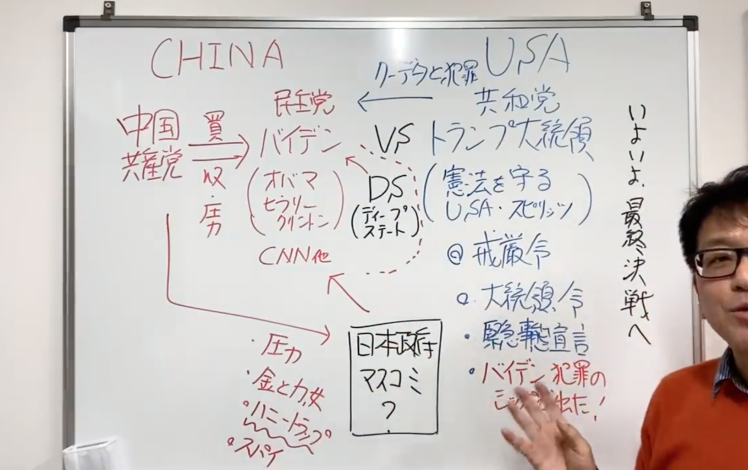 CHINA
USA
クーデタと犯罪
民主党
共和党
中国
共産党
買
収
・圧
力
バイデン
VS
トランプ大統領
(オバマ
ヒラリー
クリントン)
DS
(ディープ
ステート)
(憲法を守る
USA・スピリッツ)
CNN他
戒厳令
大統領令
・緊急事態宣言
・バイデン犯罪の
出た!
・圧力
・金と力、女
・ハニートラップ
・スパイ
日本政府
マスコミ
?
いよいよ、最終決戦へ